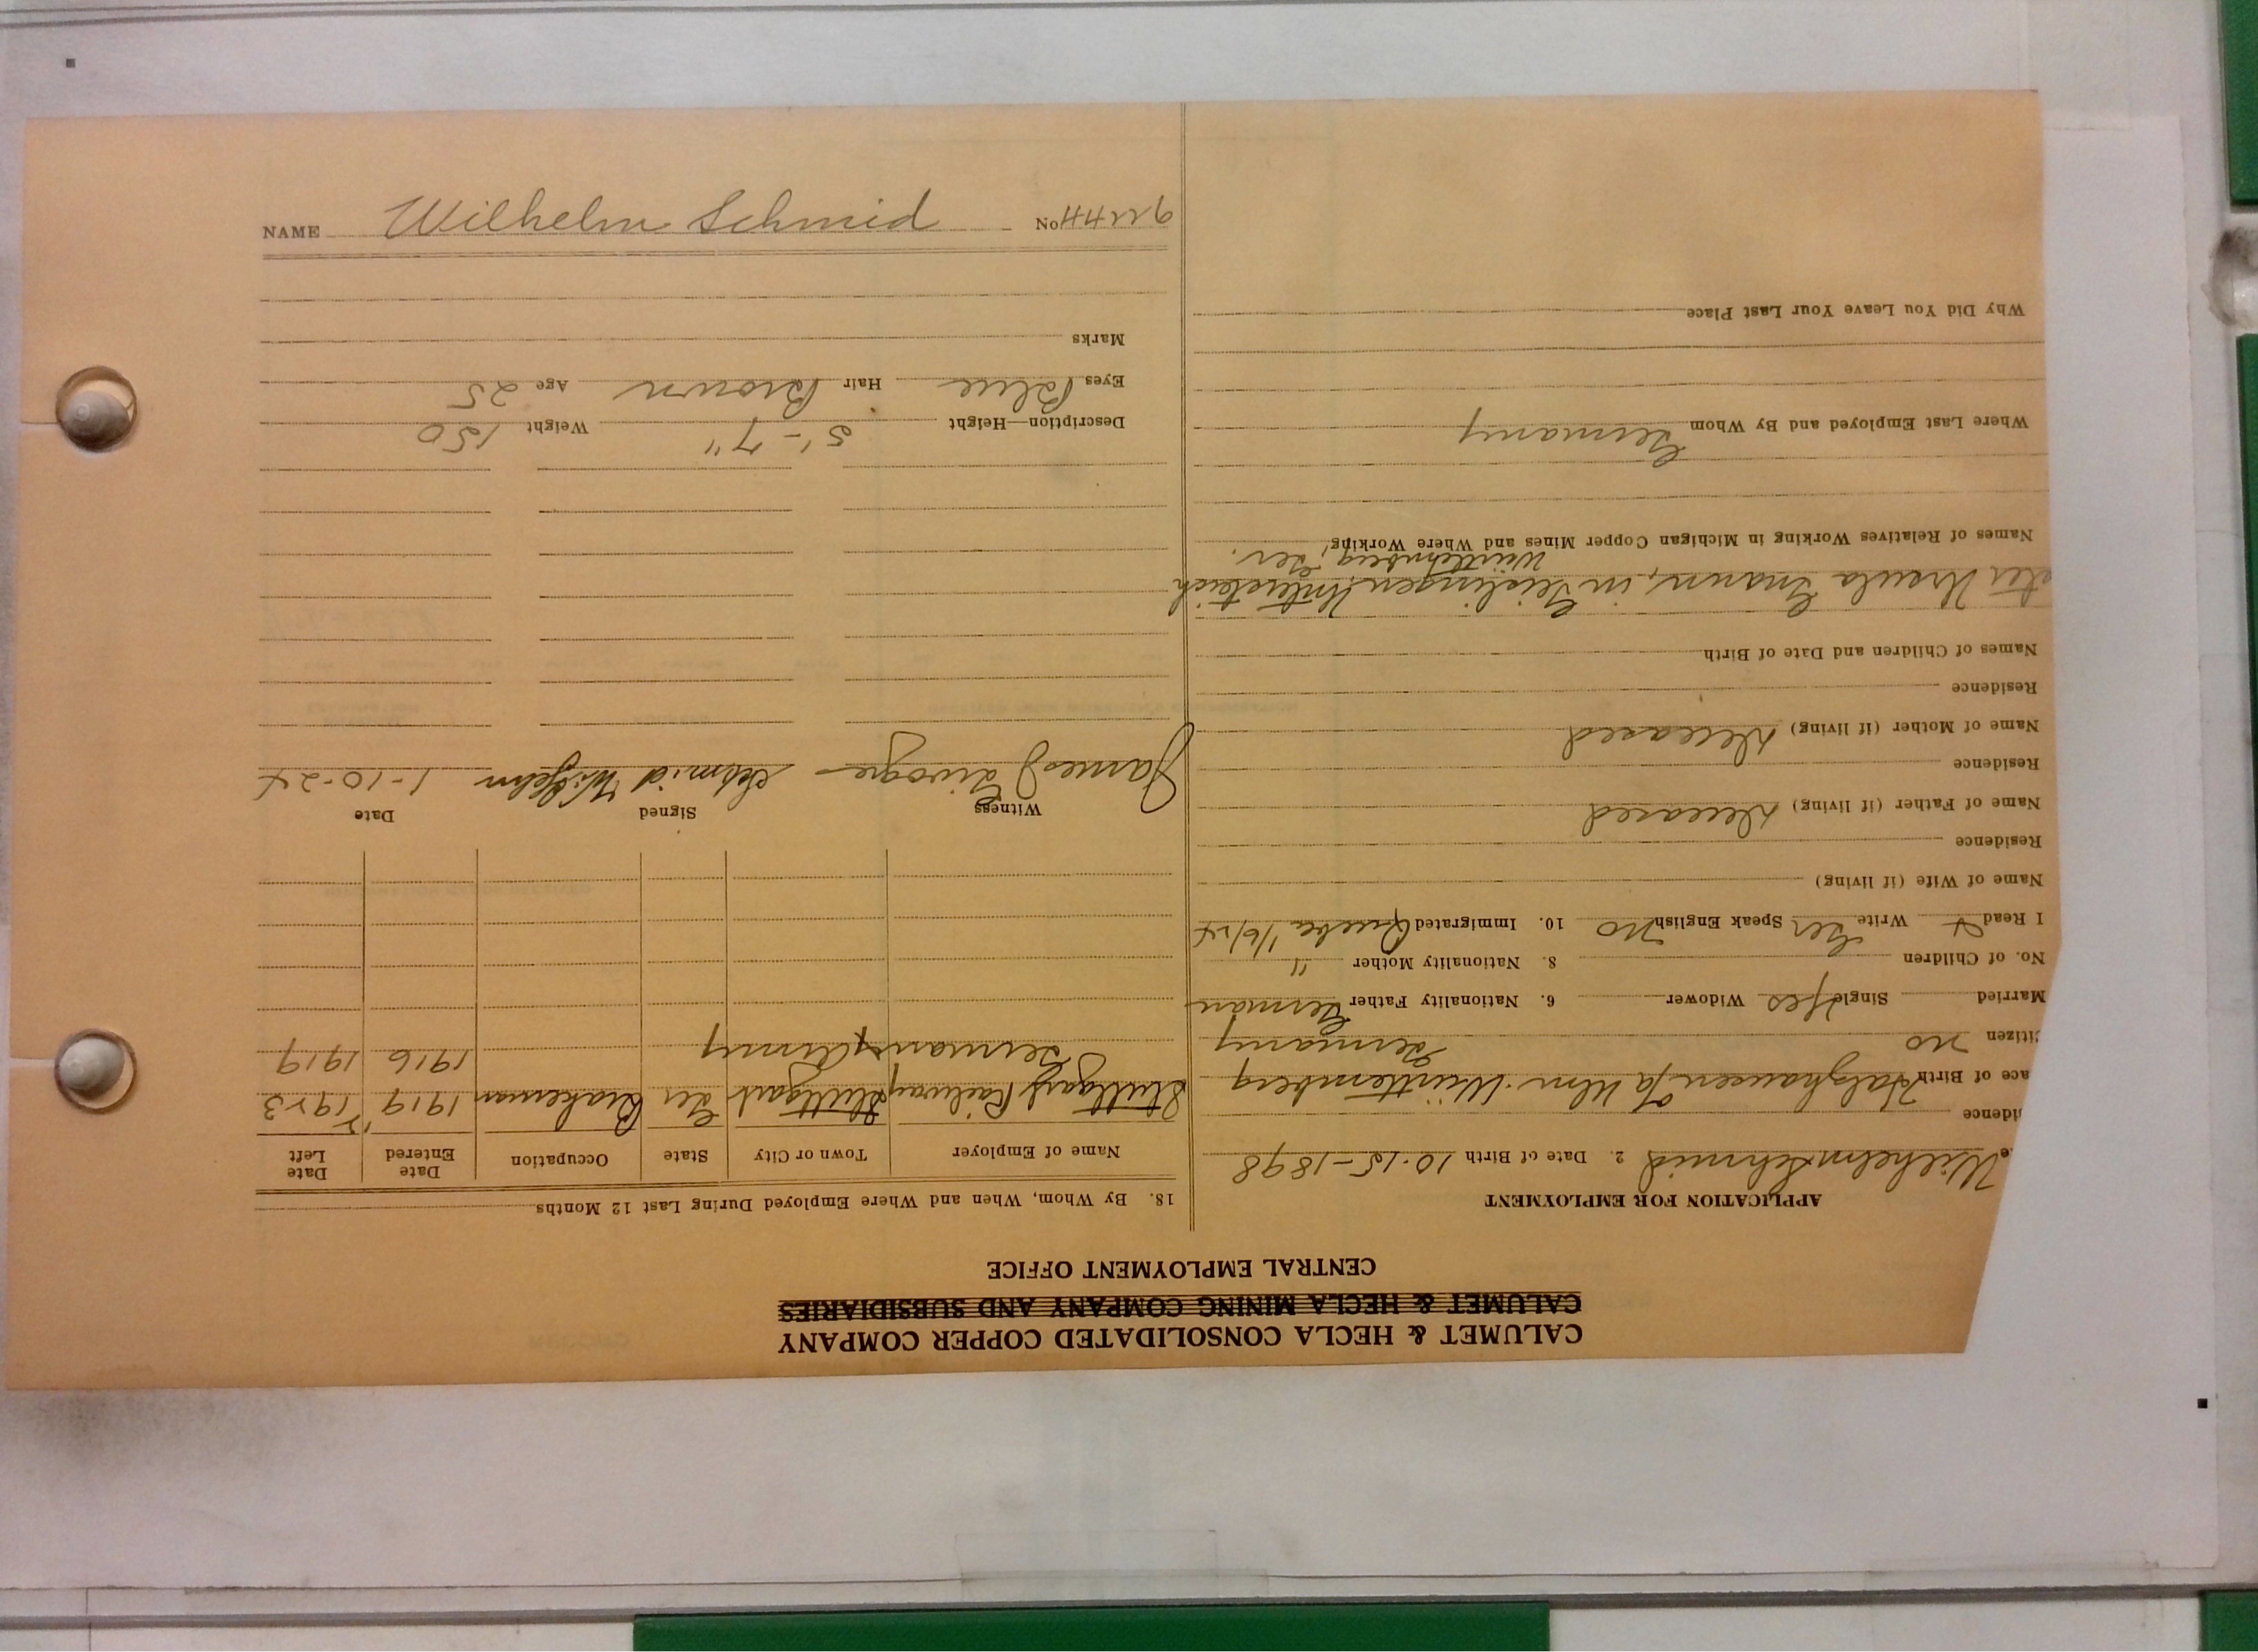 CALUMET & HECLA CONSOLIDATED COPPER COMPANY
CALUMET & HECLA MINING COMPANY AND SUBSIDIARIES
CENTRAL EMPLOYMENT OFFICE
APPLICATION FOR EMPLOYMENT
e Wilhelm Schmid 2. Date of Birth 10-15-1898
idence
ace of Birth Holzhausen Ja Ulm. Württemberg
itizen no Germany
Married Single Yes Widower 6. Nationality Father German
No. of Children 8. Nationality Mother "
I Read Write Ger Speak English No 10. Immigrated Quebec 1/6/24
Name of Wife (if living)
Residence
Name of Father (if living) Deceased
Residence
Name of Mother (if living) Deceased
Residence
Names of Children and Date of Birth
ster Ursula in Geislingen
Württemberg Ger.
Names of Relatives Working in Michigan Copper Mines and Where Working
Where Last Employed and By Whom Germany
Why Did You Leave Your Last Place
18. By Whom, When and Where Employed During Last 12 Months
Name of Employer Town or City State Occupation Date Entered Date Left
Stuttgart Railway Stuttgart Ger Brakeman 1919 1923
Germany Army 1916 1919
Witness Signed Date
James Schmid Wilhelm 1-10-24
Description—Height 5'-7" Weight 150
Eyes Blue Hair Brown Age 25
Marks
NAME Wilhelm Schmid No.